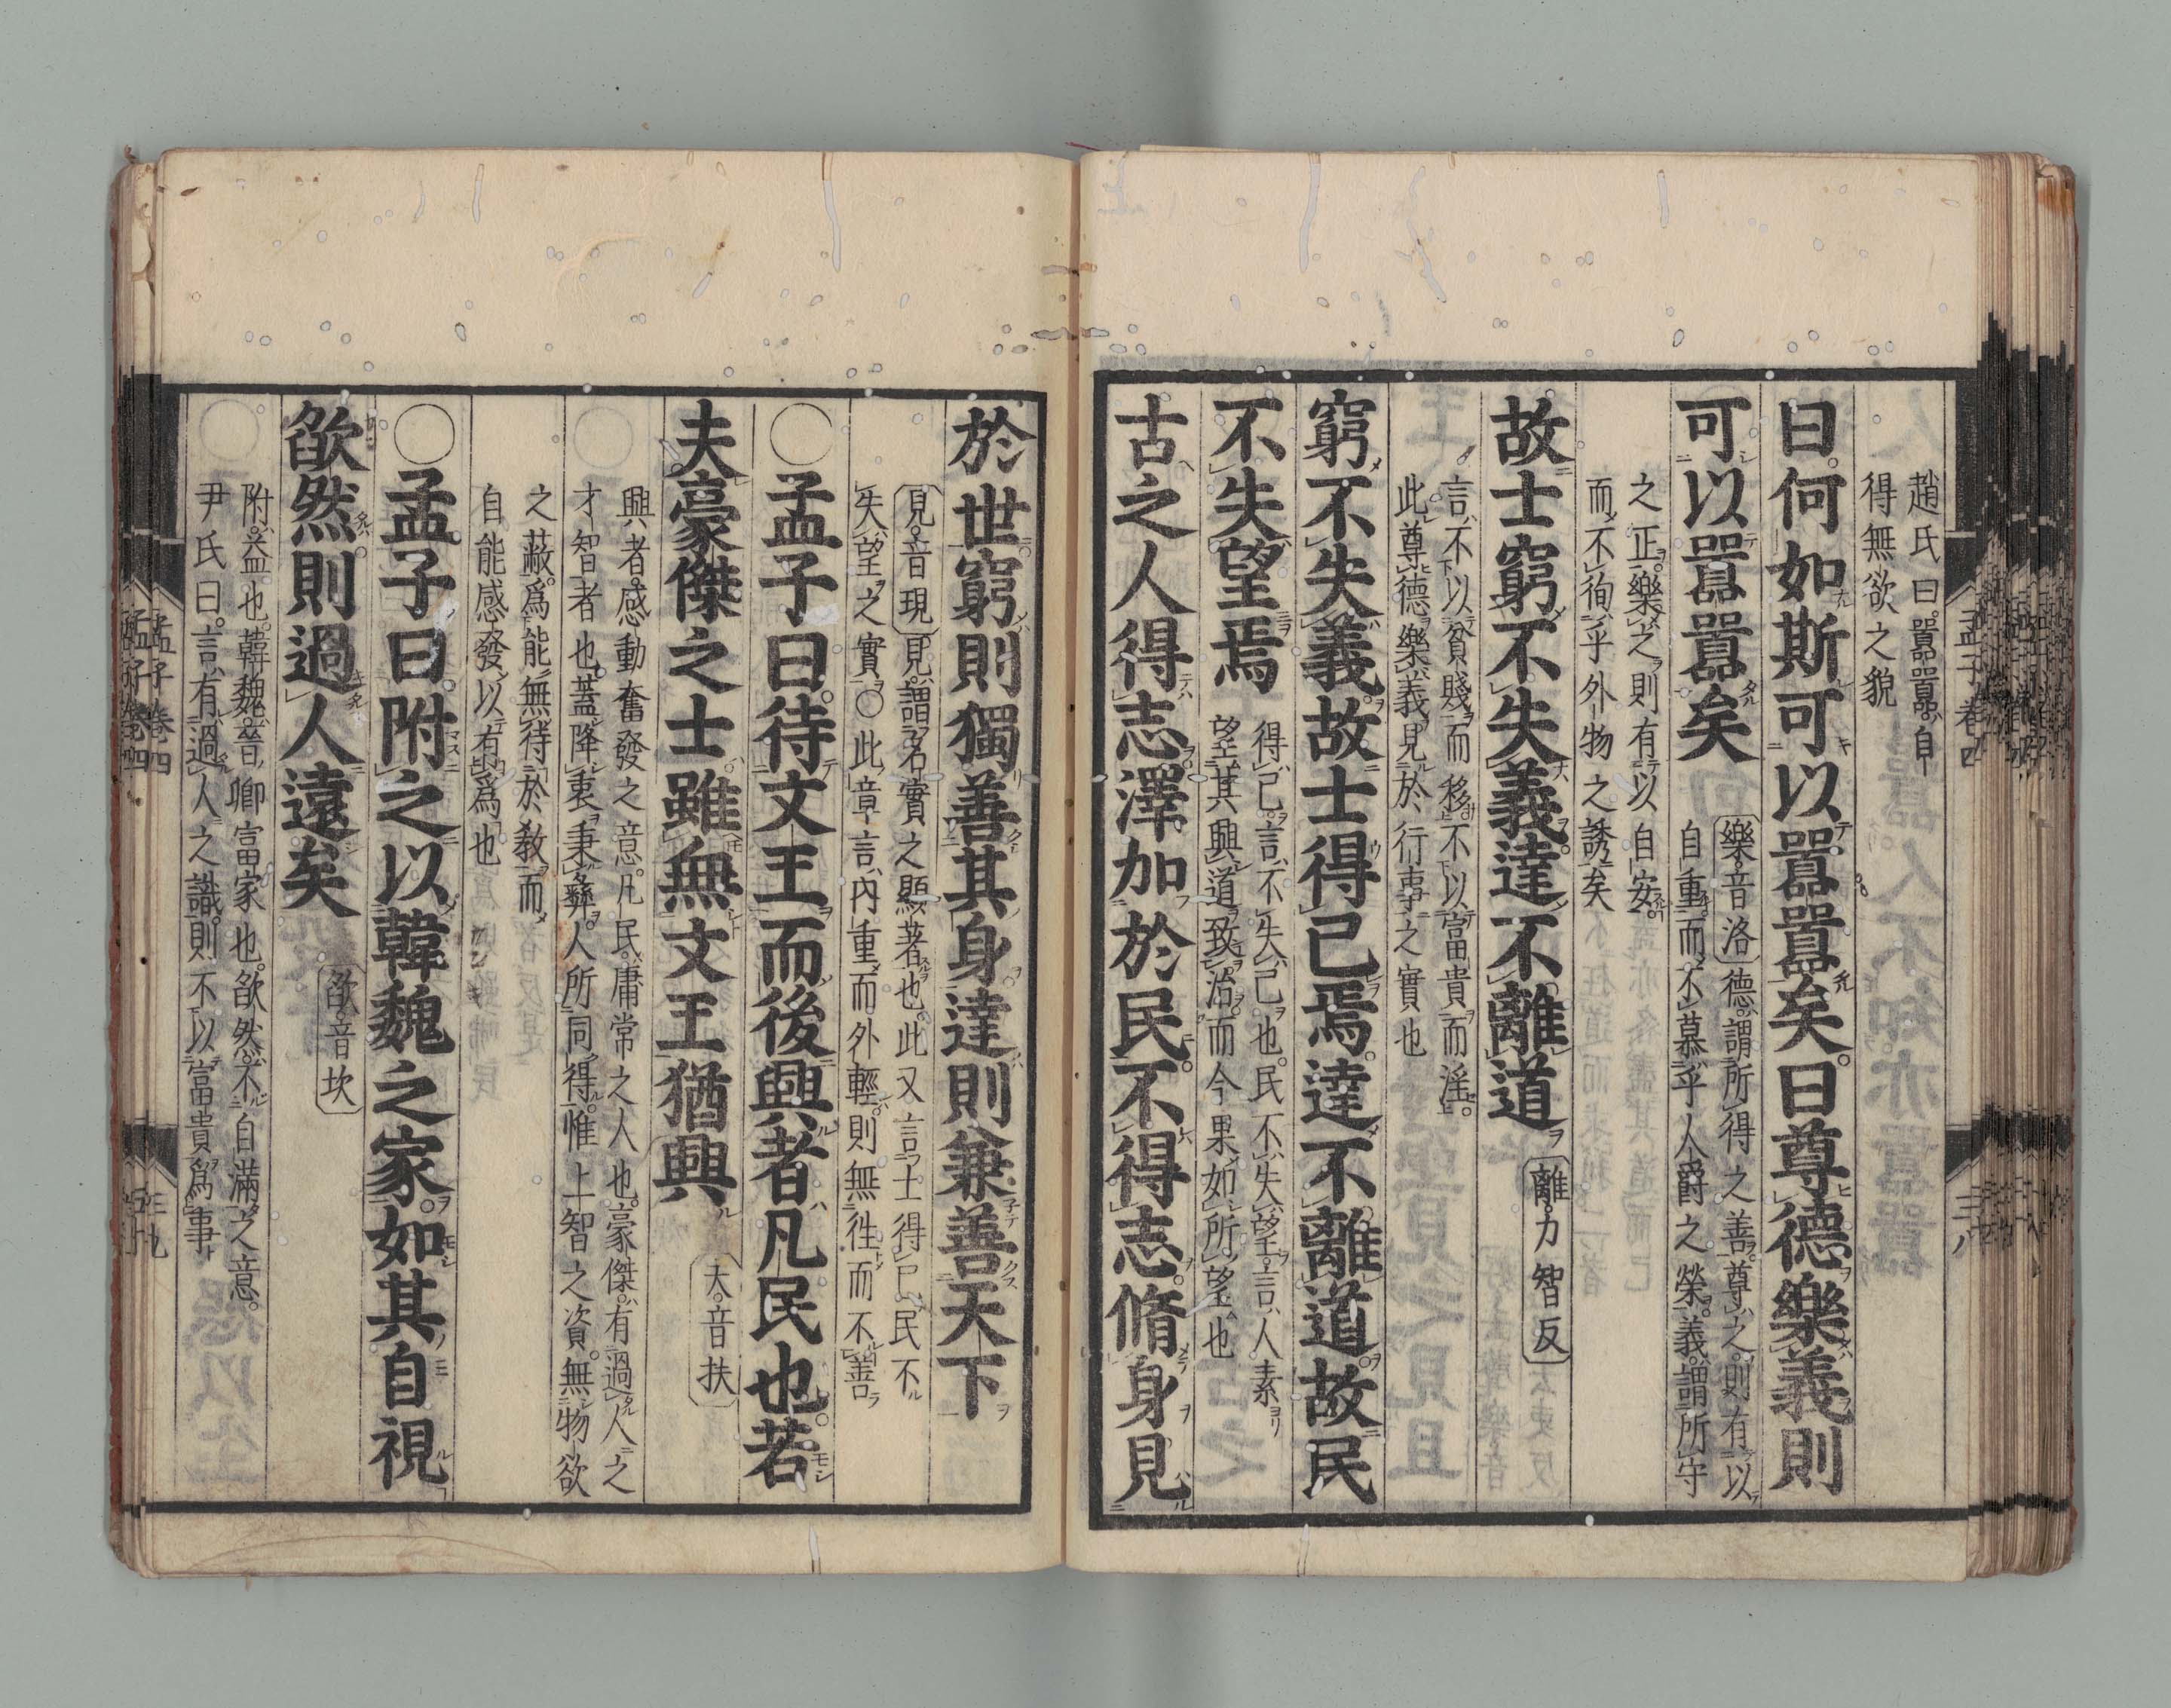 趙氏曰囂囂自
得無欲之貌
曰何如斯可以囂囂矣曰尊德樂義則
可以囂囂矣
樂音洛德謂所得之善尊之則有以
自重而不慕乎人爵之榮義謂所守
之正樂之則有以自安
而不徇乎外物之誘矣
故士窮不失義達不離道
離力智反
言不以貧賤而移不以富貴而淫
此尊德樂義見於行事之實也
窮不失義故士得己焉達不離道故民
不失望焉
得己言不失己也民不失望言人素
望其興道致治而今果如所望也
古之人得志澤加於民不得志脩身見
於世窮則獨善其身達則兼善天下
見音現見謂名實之顯著也此又言士得己民不
失望之實○此章言內重而外輕則無往而不善
○孟子曰待文王而後興者凡民也若
夫豪傑之士雖無文王猶興
夫音扶
興者感動奮發之意凡民庸常之人也豪傑有過人之
才智者也蓋降衷秉彝人所同得惟上智之資無物欲
之蔽爲能無待於教而
自能感發以有爲也
○孟子曰附之以韓魏之家如其自視
欿然則過人遠矣
欿音坎
附益也韓魏晉卿富家也欿然不自滿之意
尹氏曰言有過人之識則不以富貴爲事
孟子卷四
三八
孟子卷四
三九